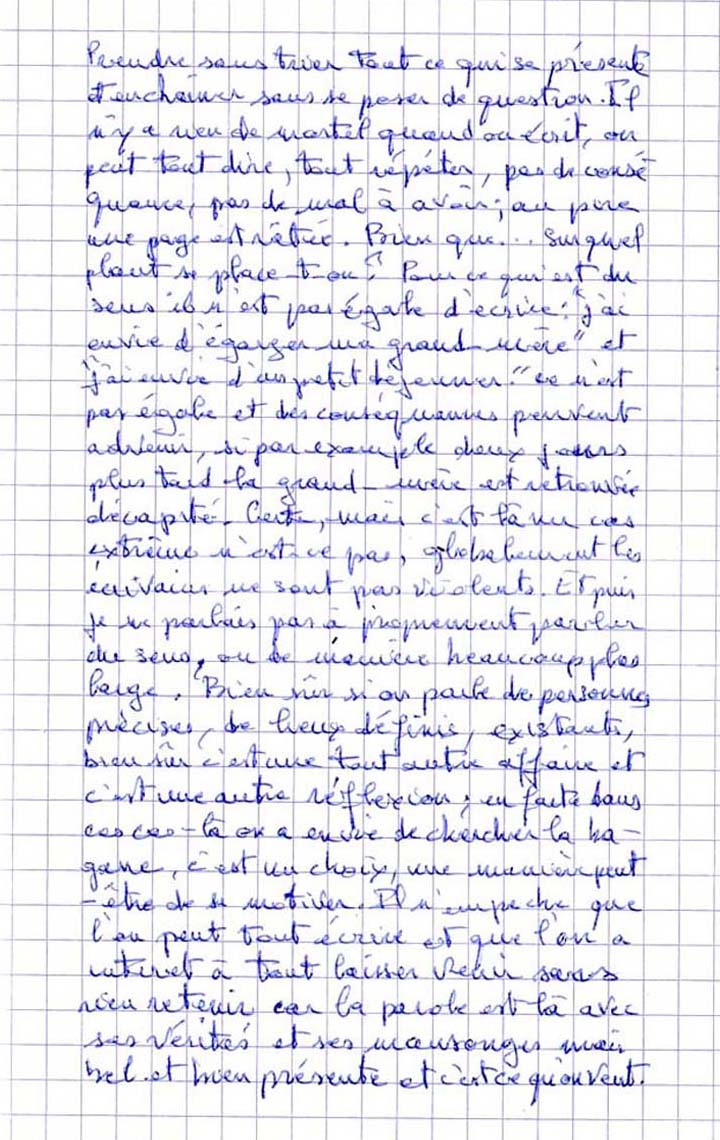 Prendre sans trier tout ce qui se présente
et enchainer sans se poser de question. Il
n'y a rien de mortel quand on écrit, on
peut tout dire, tout répéter, pas de consé
quence, pas de mal à avoir; au pire
une page est ratée. Bien que... Sur quel
plant se place-t-on? Pour ce qui est du
sens il n'est pas égale d'écrire: "j'ai
envie d'égorger ma grand-mère" et
"j'ai envie d'un petit déjeuner." ce n'est
pas égale et des conséquences peuvent
advenir, si par exemple deux jours
plus tard la grand-mère est retrouvée
décapité. Certe, mais c'est là un cas
extrême n'est ce pas, globalement les
écrivains ne sont pas violents. Et puis
je ne parlais pas à proprement parler
du sens, ou de manière beaucoup plus
large. Bien sûr si on parle de personnes
précises, de lieux définis, existants,
bien sûr c'est une tout autre affaire et
c'est une autre réflexion; en faite dans
ces cas-là on a envie de chercher la ba-
gare, c'est un choix, une manière peut
-être de se motiver. Il n'empeche que
l'on peut tout écrire et que l'on a
interet à tout laisser venir sans
rien retenir car la parole est là avec
ses vérités et ses mensonges mais
bel et bien présente et c'est ce qu'on veut.